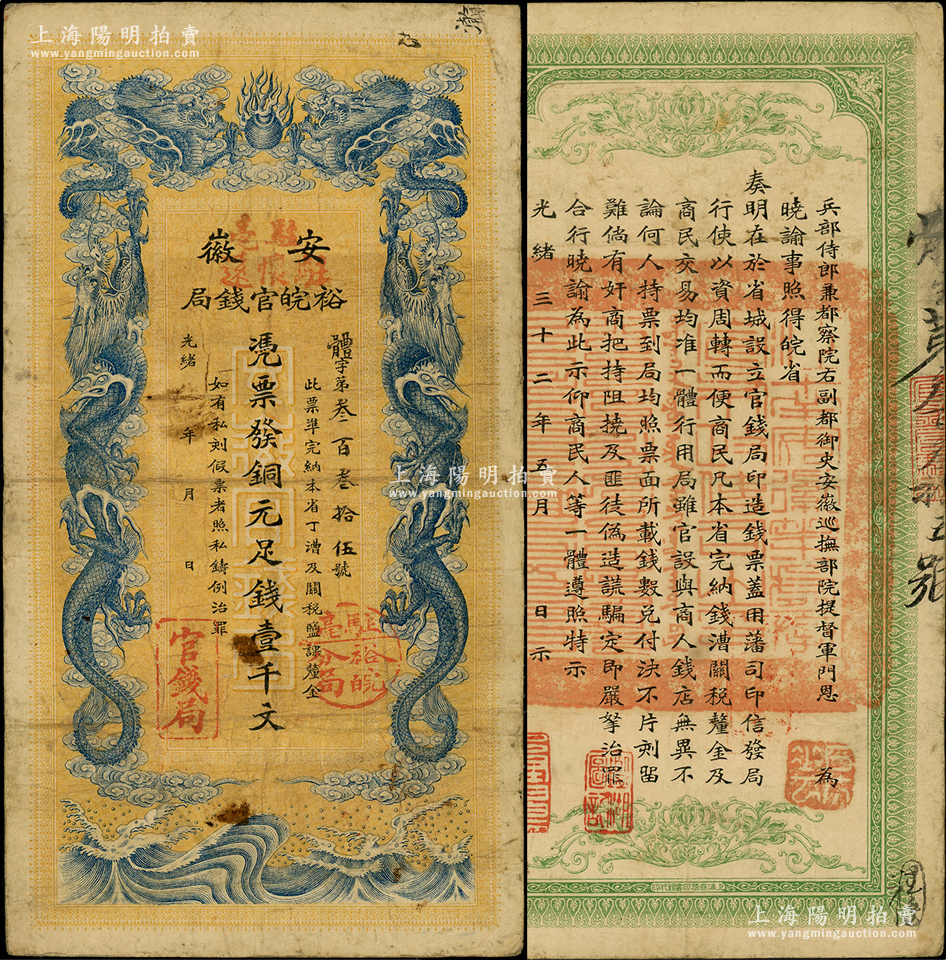 上海陽明拍賣
www.yangmingauction.com
安徽
裕皖官錢局
體字第叁百叁拾伍號
此票準完納本省丁漕及關稅鹽課釐金
憑票發銅元足錢壹千文
如有私刻假票者照私鑄例治罪
光緒 年 月 日
官錢局
駐亳裕皖分局
上海陽明拍賣
www.yangmingauction.com
兵部侍郎兼都察院右副都御史安徽巡撫部院提督軍門恩 為
曉諭事照得皖省
奏明在於省城設立官錢局印造錢票蓋用藩司印信發局
行使以資周轉而便商民凡本省完納錢漕關稅釐金及
商民交易均准一體行用局雖官設與商人錢店無異不
論何人持票到局均照票面所載錢數兌付決不片刻留
難倘有奸商把持阻撓及匪徒偽造謊騙定即嚴拏治罪
合行曉諭為此示仰商民人等一體遵照特示
光緒三十二年五月 日示
上海陽明拍賣
www.yangmingauction.com